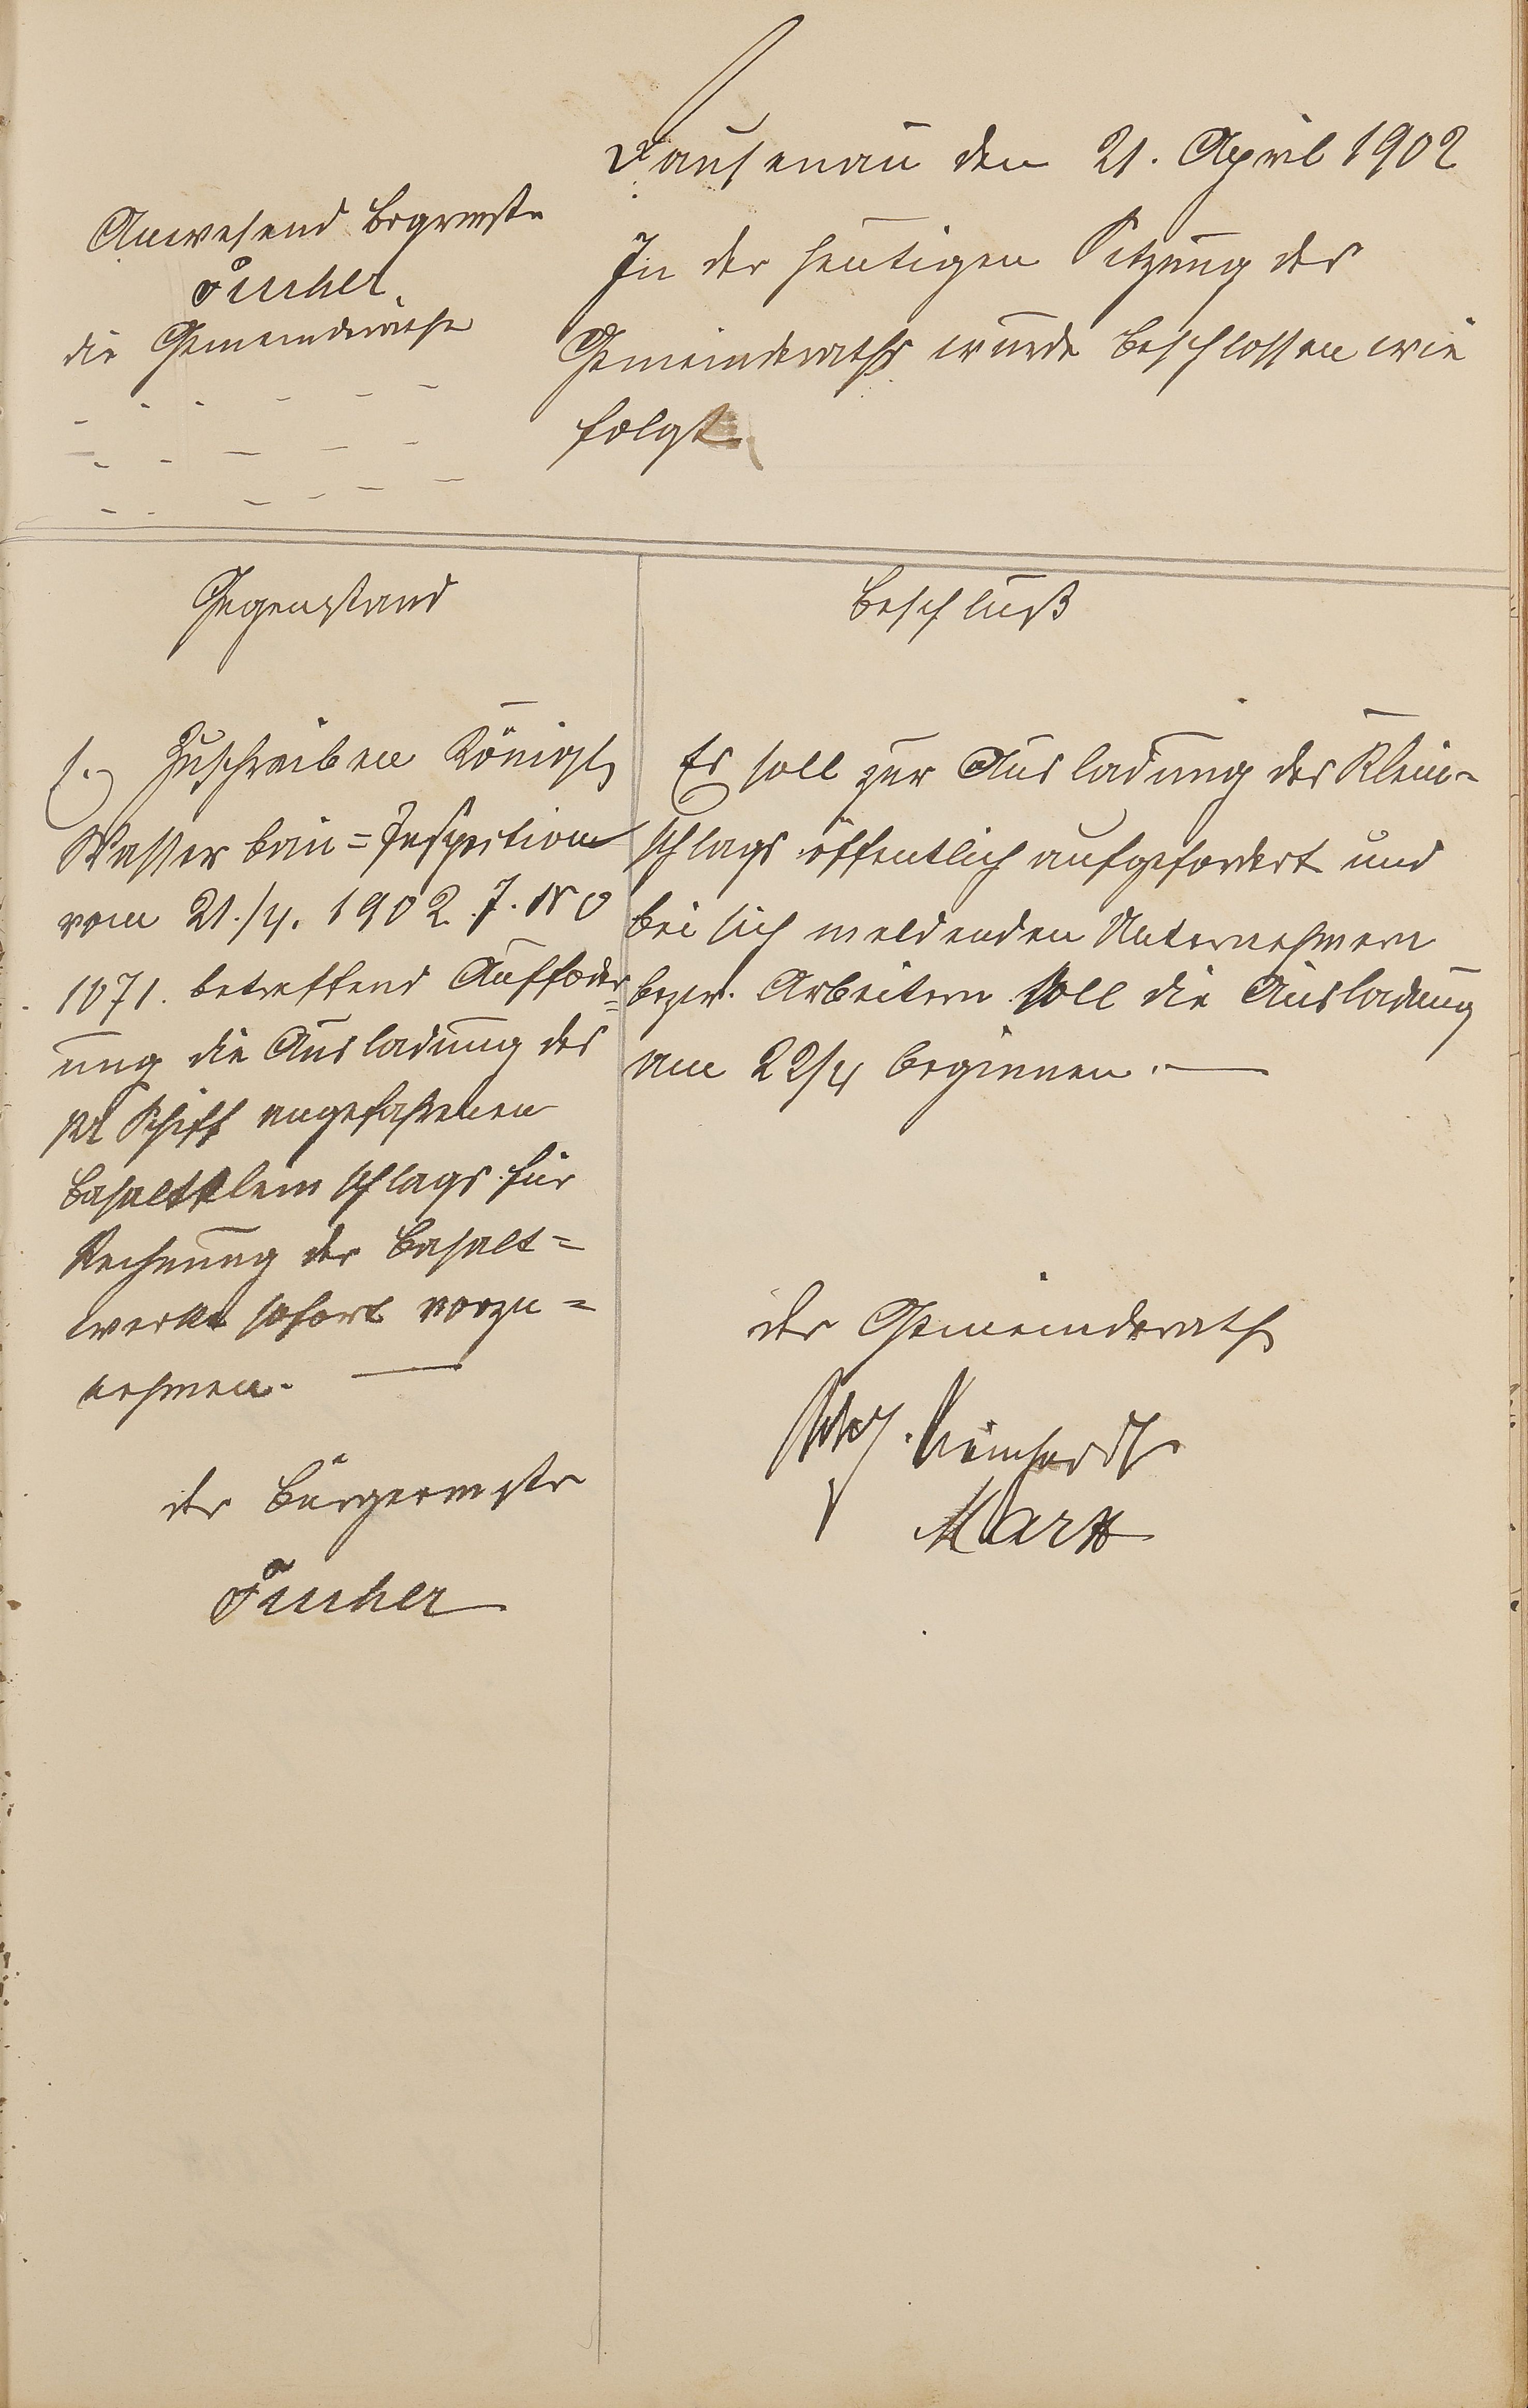 Dausenau den 21. April 1902
Anwesend Bgrmstr
Fischer
die Gemeinderäthe
In der heutigen Sitzung des
Gemeinderaths wurde beschlossen wie
folgt
Gegenstand
1.) Zuschreiben Königl
Wasserbau=Inspection
vom 21./4. 1902 J. No
1071. betreffend Auffoder=
ung die Ausladung des
pr Schiff angefahrenen
Basaltkleinschlags für
Rechnung der Basalt=
werke sofort vorzu=
nehmen.
der Bürgermstr
Fischer
Beschluß
Es soll zur Ausladung des Klein-
schlags öffentlich aufgefordert und
bei sich meldenden Unternehmern
bezw. Arbeitern soll die Ausladung
am 22/4 beginnen.
der Gemeinderath
Reinhardt
Marx